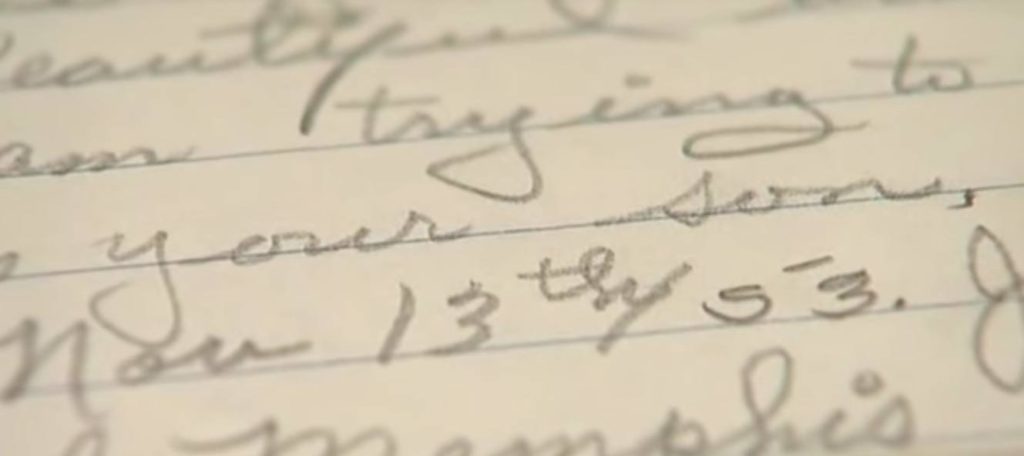 beautiful
am trying to
your son,
Nov 13th/53. J
Memphis